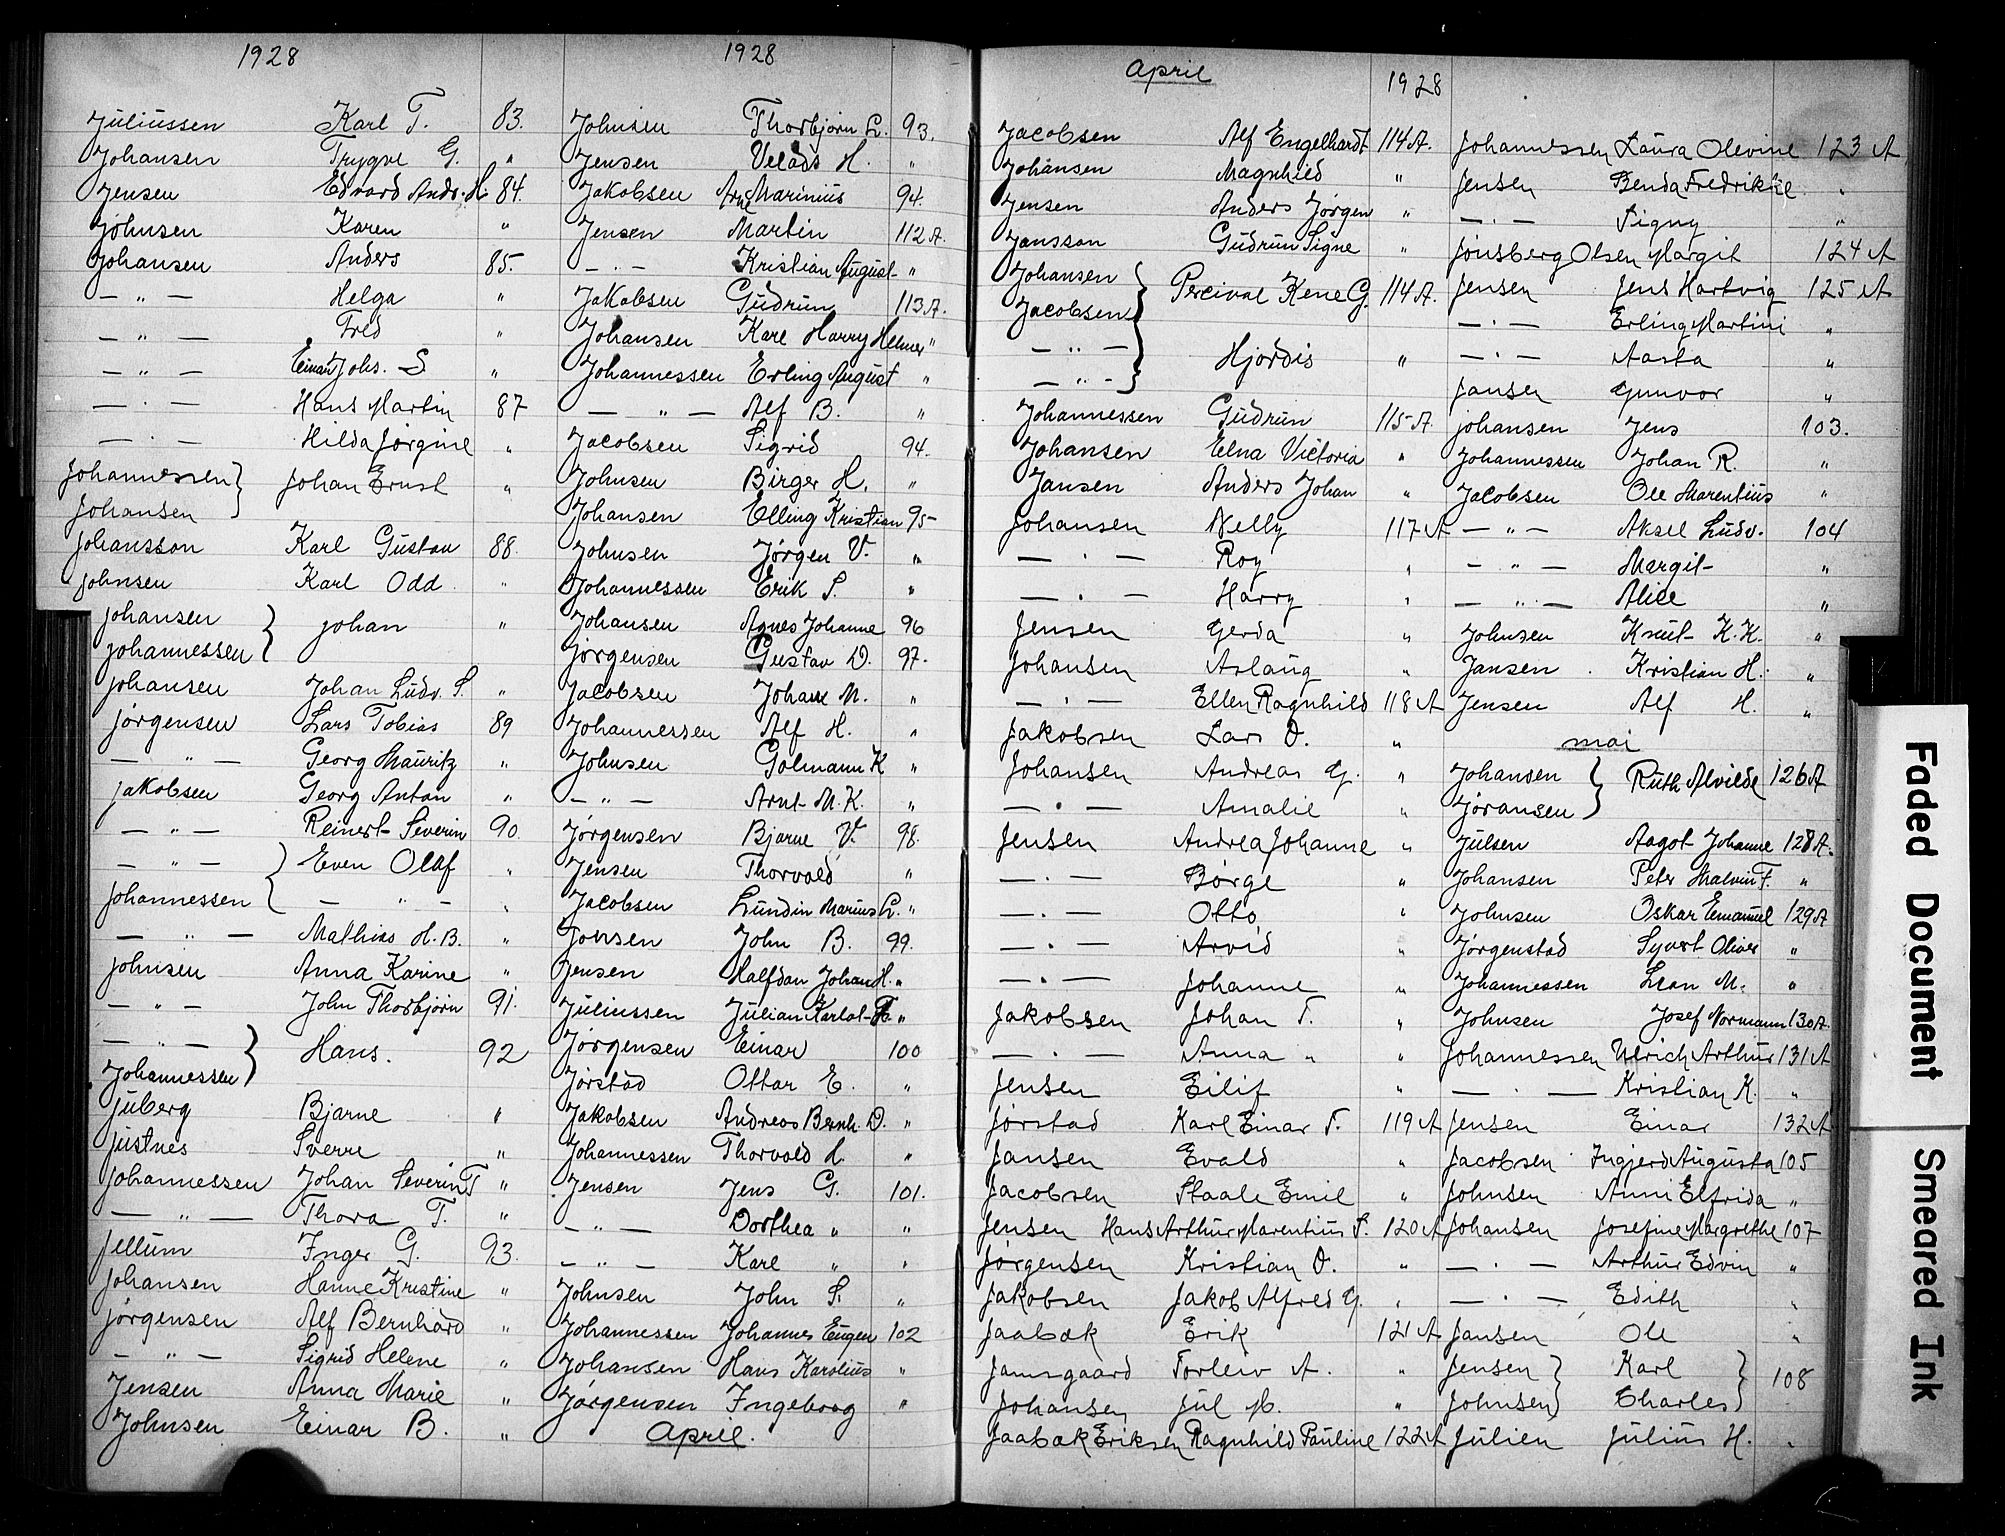 1928
Juliussen Karl T. 83.
Johansen Trygve G. "
Jensen Edvard Ands. H. 84.
Johnsen Karen "
Johansen Anders 85.
— " — Helga "
— " — Fred "
— " — Einar Johs. S "
— " — Hans Martin 87
— " — Hilda Jørgine "
Johannessen } Johan Ernst "
Johansen
Johansson Karl Gustav 88.
Johnsen Karl Odd "
Johansen } Johan "
Johannessen
Johansen Johan Ludv. S. "
Jørgensen Lars Tobias 89
— " — Georg Mauritz "
Jakobsen Georg Anton "
— " — Reinert Severin 90.
— " — { Even Olaf "
Johannessen — " — "
— " — Mathias H. B. "
Johnsen Anna Karine "
— " — John Thorbjørn 91.
— " — } Hans. 92
Johannessen
Juberg Bjarne "
Justnes Sverre "
Johannessen Johan Severin T "
— " — Thora T. "
Jellum Inger G. 93.
Johansen Hanne Kristine "
Jørgensen Alf Bernhard "
— " — Sigrid Helene "
Jensen Anna Marie "
Johnsen Einar B. "
1928
Johnsen Thorbjørn L. 93.
Jensen H. "
Jakobsen Arne Marinius 94.
Jensen Martin 112 A.
— " — Kristian August "
Jakobsen Gudrun 113 A.
Johansen Karl Harry Helmer "
Johannessen Erling August "
— " — Alf B. "
Jacobsen Sigrid 94.
Johnsen Birger H. "
Johansen Elling Kristian 95
Johnsen Jørgen V. "
Johannessen Erik S. "
Johansen Agnes Johanne 96
Jørgensen Gustav D. 97.
Jacobsen Johan M. "
Johannessen Alf H. "
Johnsen Golmann K "
— " — Arnt M. K. "
Jørgensen Bjarne V. 98.
Jensen Thorvald "
Jacobsen Lundin Marius L. "
Jonsen John B. 99.
Jensen Halfdan Johan H. "
Juliussen Julian "
Jørgensen Einar 100
Jørstad Ottar E. "
Jakobsen Andreas Bernh. D. "
Johannessen Thorvald L. "
Jensen Jens G. 101.
— " — Dorthea " "
— " — Karl " "
Johnsen John S. "
Johannessen Johannes Eugen 102
Johansen Hans Karolius "
Jørgensen Ingeborg "
April.
April
1928
Jacobsen Alf Engelhardt 114 A.
Johansen Magnhild "
Jensen Anders Jørgen "
Jansson Gudrun Signe "
Johansen } Percival Rene G. 114 A.
Jacobsen
— " — } Hjørdis "
— " —
Johannessen Gudrun 115 A.
Johansen Elna Victoria "
Jansen Anders Johan "
Johansen Nelly 117 A
— " — Roy "
— " — Harry "
Jensen Gerda "
Johansen Aslaug "
— " — Ellen Ragnhild 118 A
Jakobsen Lars O. "
Johansen Andreas G. "
— " — Amalie "
Jensen Andrea Johanne "
— " — Børge "
— " — Otto "
— " — Arvid "
— " — Johanne "
Jakobsen Johan T. "
— " — Anna " "
Jensen Eilif "
Jørstad Karl Einar T. 119 A
Jansen Evald "
Jacobsen Staale Emil "
Jensen Hans Arthur Marentius S. 120 A
Jørgensen Kristian O. "
Jakobsen Jakob Alfred G. "
Jaabæk Erik 121 A
Jamsgaard Torleiv A. "
Johansen Jul M. "
Jaabæk Eriksen Ragnhild Pauline 122 A
Johannessen Laura Olevine 123 A
Jensen Benda Fredrikke "
— " — Signy "
Jønsberg Olsen Margit 124 A
Jensen Jens Hartvig 125 A
— " — Erling Martini "
— " — Aasta "
Jansen Gunvor "
Johansen Jens 103.
Johannessen Johan R. "
Jacobsen Ole Marentius "
— " — Aksel Ludv. 104
— " — Margit "
— " — Alice "
Johnsen Knut K. K. "
Jansen Kristian H. "
Jensen Alf H. "
mai
Johansen } Ruth Alvilde 126 A
Jøransen
Julsen Aagot Johanne 128 A.
Johansen Peter Malvin F. "
Johnsen Oskar Emanuel 129 A
Jørgenstad Syvert Oliver "
Johannessen Leon M. "
Johnsen Josef Normann 130 A.
Johannessen Ulrich Arthur 131 A
— " — Kristian K. "
Jensen Einar 132 A
Jacobsen Ingjerd Augusta 105
Johnsen Anni Elfrida "
Johansen Josefine Margrethe 107
— " — Arthur Edvin "
— " — Edith "
Jansen Ole "
Jensen } Karl } 108
Johnsen } Charles }
Julien Julius H. "
Faded Document
Smeared Ink